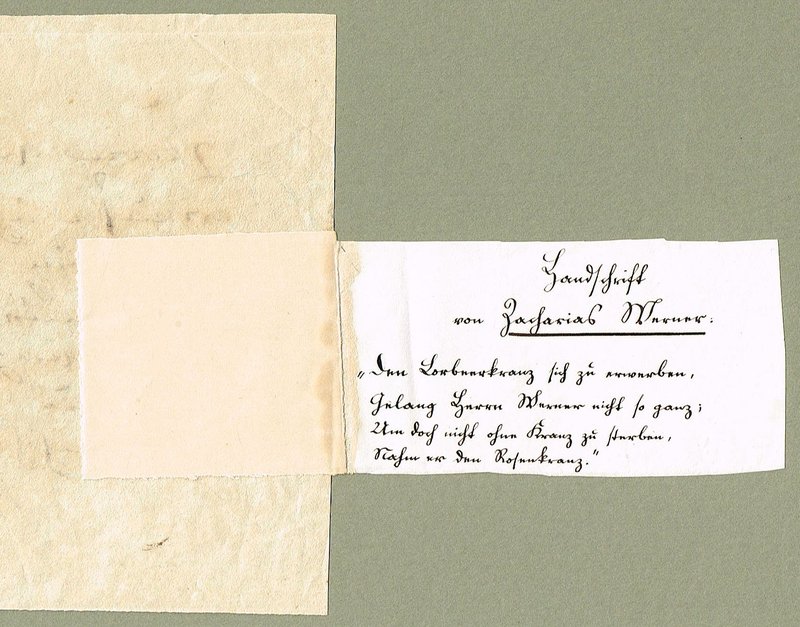 Handschrift
von Zacharias Werner:
„Den Lorbeerkranz sich zu erwerben,
Gelang Herrn Werner nicht so ganz;
Um doch nicht ohne Kranz zu sterben,
Nahm er den Rosenkranz.“